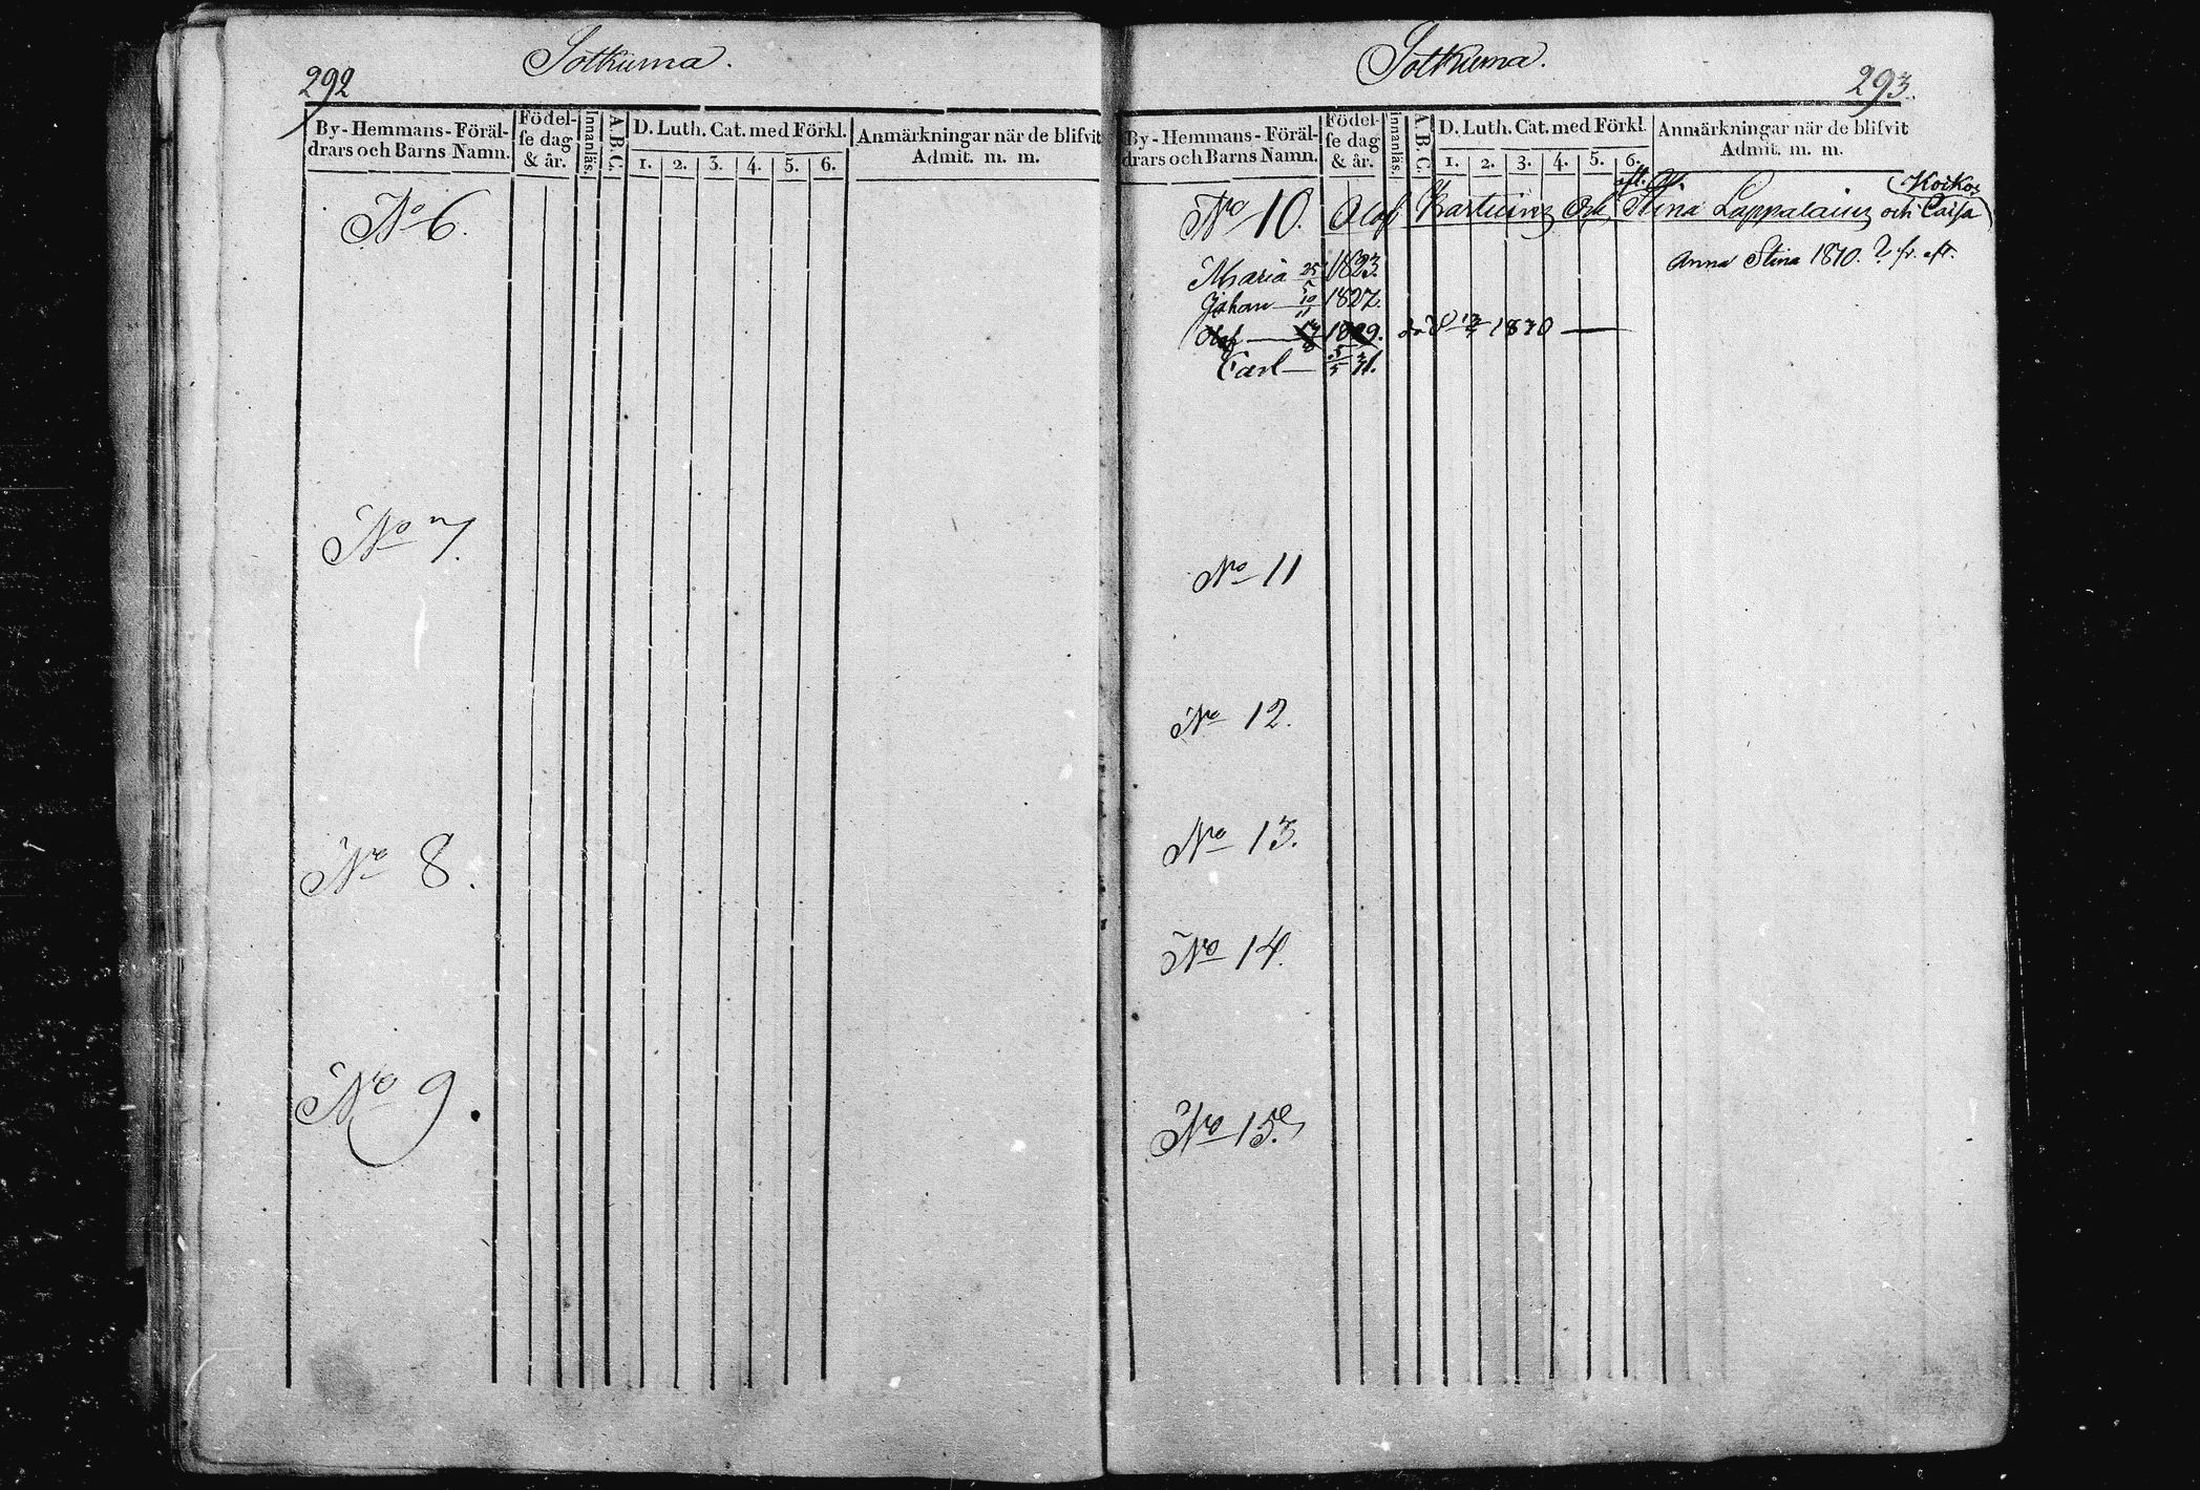 292
Sotkuma.
By-Hemmans-Föräl-
drars och Barns Namn.
Födel-
se dag
& år.
Innanläs.
A. B. C.
D. Luth. Cat. med Förkl.
1. 2. 3. 4. 5. 6.
Anmärkningar när de blifvit
Admit. m. m.
No 6.
No 7.
No 8.
No 9.
Sotkuma.
293.
By-Hemmans-Föräl-
drars och Barns Namn.
Födel-
se dag
& år.
Innanläs.
A. B. C.
D. Luth. Cat. med Förkl.
1. 2. 3. 4. 5. 6.
Anmärkningar när de blifvit
Admit. m. m.
No 10. Olof och Stina Lappalain och Caisa
Anna Stina 1810.
Maria 1823.
Johan 1827.
Olof 1829. död 1830
Carl 5/5 31.
No 11
No 12.
No 13.
No 14.
No 15.